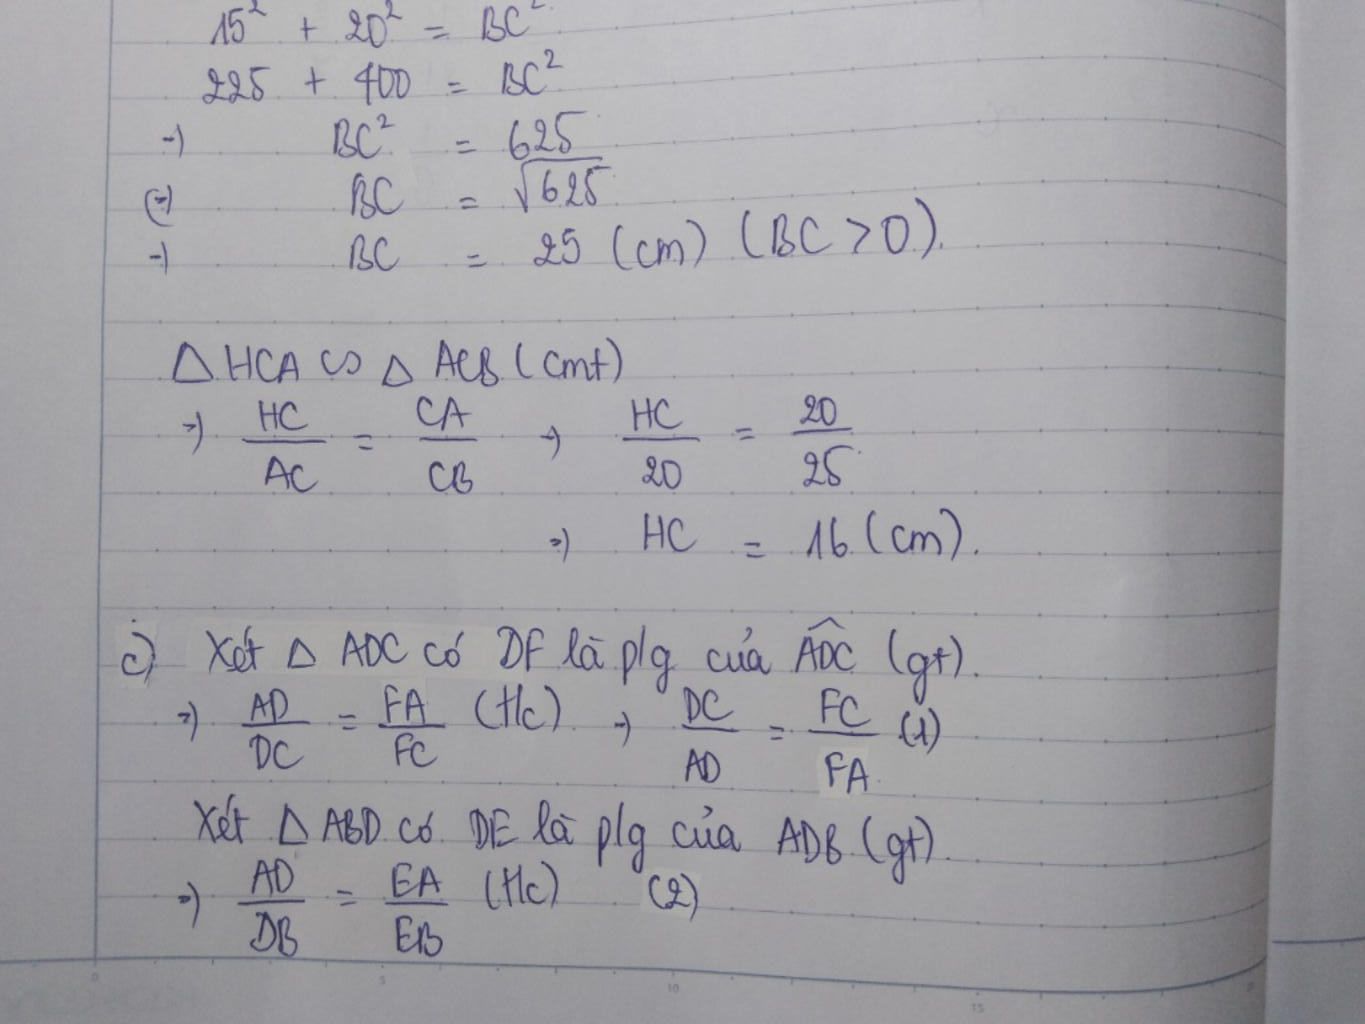 15² + 20² = BC²
225 + 400 = BC²
=) BC² = 625
(=) BC = √625
=) BC = 25 (cm) (BC > 0).
Δ HCA ∽ Δ ACB (cmt)
=) HC/AC = CA/CB =) HC/20 = 20/25
=) HC = 16 (cm).
c) Xét Δ ADC có DF là p/g của \widehat{ADC} (gt).
=) AD/DC = FA/FC (t/c) =) DC/AD = FC/FA (1)
Xét Δ ABD có DE là p/g của ADB (gt).
=) AD/DB = EA/EB (t/c) (2)
0 5 10 15